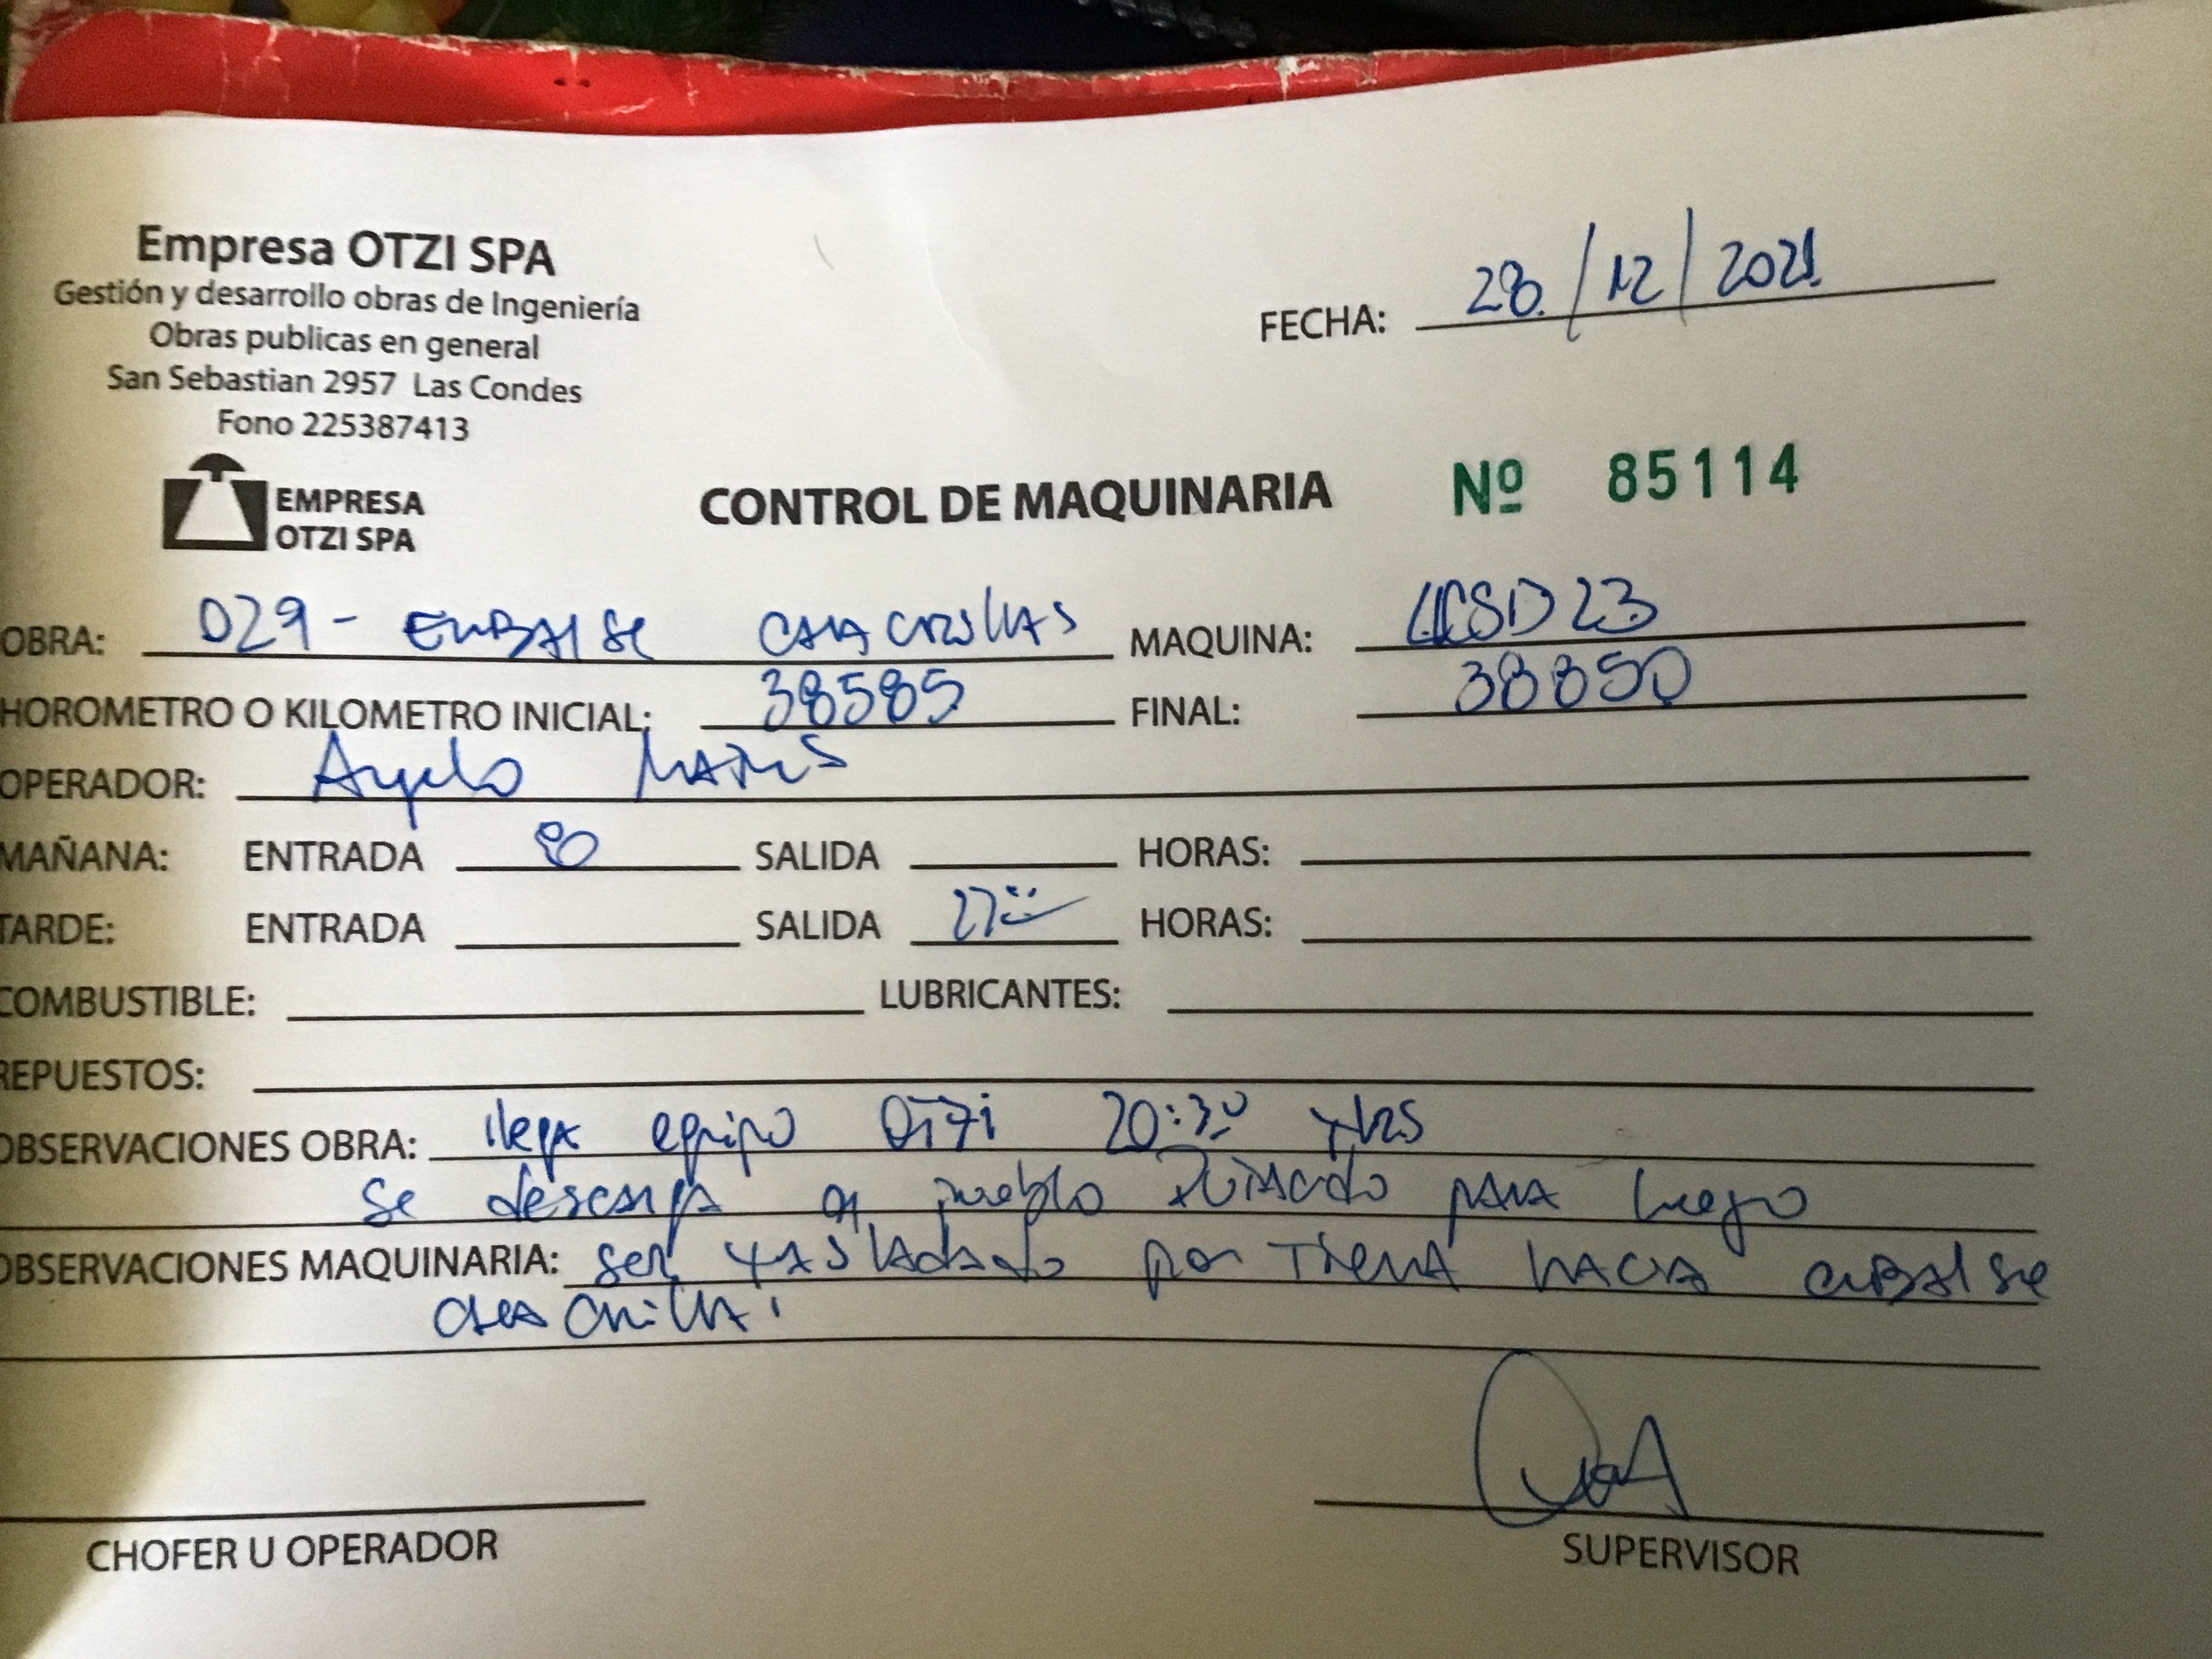 Empresa OTZI SPA
Gestión y desarrollo obras de Ingeniería
Obras publicas en general
San Sebastian 2957 Las Condes
Fono 225387413
FECHA: 28/12/2021
EMPRESA
OTZI SPA
CONTROL DE MAQUINARIA Nº 85114
OBRA: 029 - Embalse MAQUINA: 23
HOROMETRO O KILOMETRO INICIAL: 38585 FINAL: 38850
OPERADOR: Angelo
MAÑANA: ENTRADA 8 SALIDA HORAS:
TARDE: ENTRADA SALIDA HORAS:
COMBUSTIBLE: LUBRICANTES:
REPUESTOS:
OBSERVACIONES OBRA: llega equipo Otzi 20:30 Hrs
se descarga en pueblo para luego
OBSERVACIONES MAQUINARIA: ser traslado por Tierra hacia embalse
CHOFER U OPERADOR
SUPERVISOR